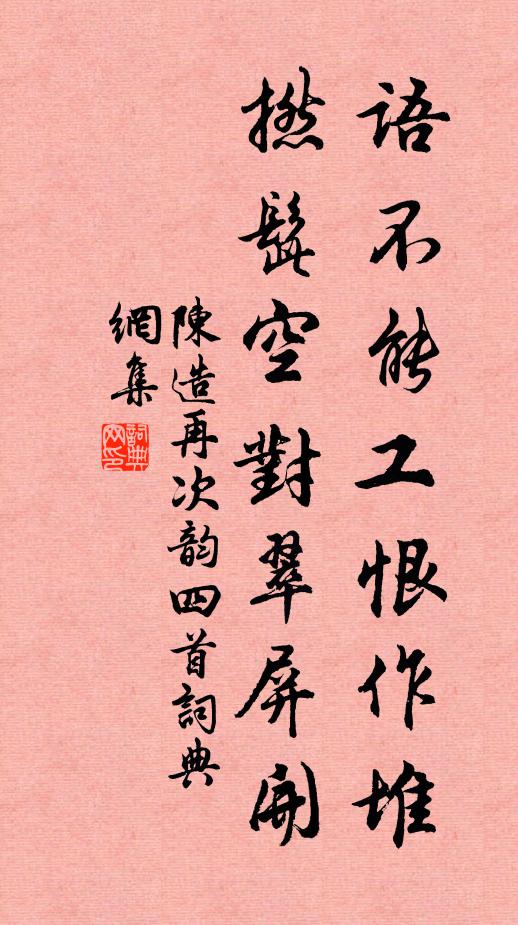 語不能工恨作堆
撚髭空對翠屏開
陳造再次韵四首詞典
網集
詞典网印